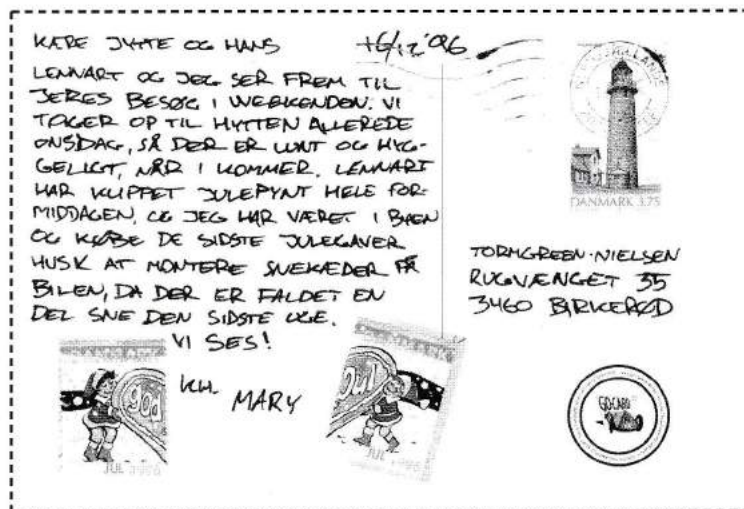 KÆRE JYTTE OG HANS
16/12 '96
LENNART OG JEG SER FREM TIL
JERES BESØG I WEEKENDEN. VI
TAGER OP TIL HYTTEN ALLEREDE
ONSDAG, SÅ DER ER LUNT OG HYG-
GELIGT, NÅR I KOMMER. LENNART
HAR KLIPPET JULEPYNT HELE FOR-
MIDDAGEN, OG JEG HAR VÆRET I BYEN
OG KØBE DE SIDSTE JULEGAVER
HUSK AT MONTERE SNEKÆDER PÅ
BILEN, DA DER ER FALDET EN
DEL SNE DEN SIDSTE UGE.
VI SES!
KH.
MARY
DANMARK 3.75
TORMGREEN-NIELSEN
RUGVÆNGET 35
3460 BIRKERØD
DANMARK
god
JUL 1996
DANMARK
Jul
JUL 1996
GO-CARD